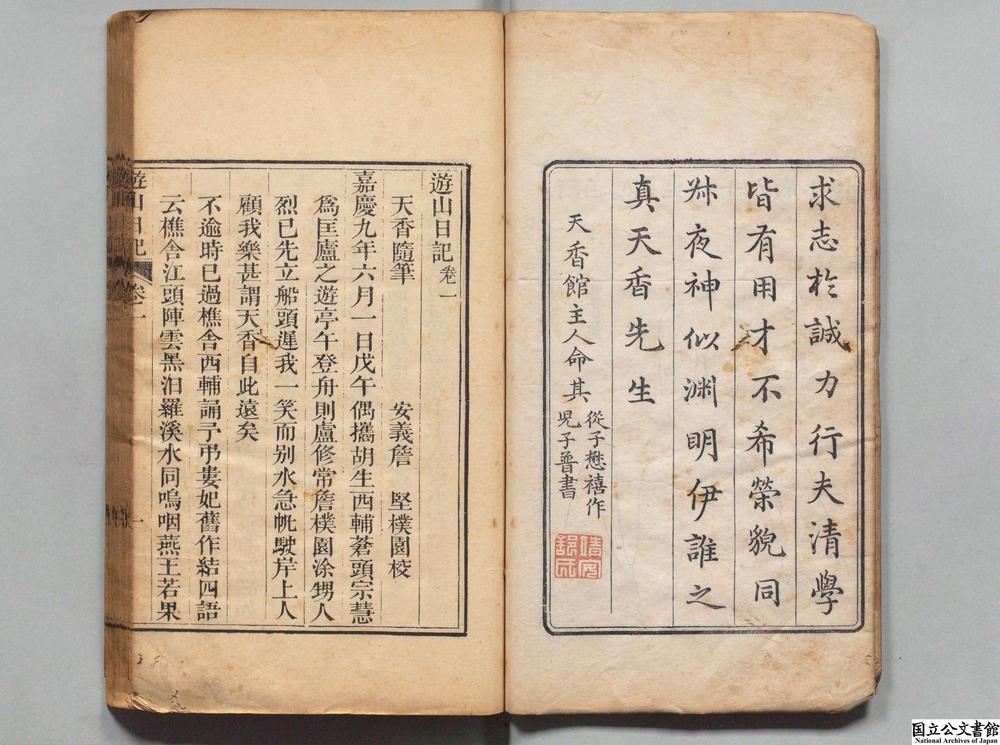 求志於誠力行夫清學
皆有用才不希榮貌同
神似淵明伊誰之
真天香先生
天香館主人命其
從子懋禧作
兒子普書
遊山日記 卷一
天香隨筆 安義詹 堅樸園校
嘉慶九年六月一日戊午偶攜胡生西輔蒼頭宗慧
爲匡廬之遊亭午登舟則盧修常詹樸園涂甥人
烈已先立船頭遲我一笑而别水急帆駛岸上人
顧我樂甚謂天香自此遠矣
不逾時已過樵舍西輔誦予弔婁妃舊作結四語
云樵舍江頭陣雲黑汨羅溪水同嗚咽燕王若果
遊山日記 卷一 一
国立公文書館
National Archives of Japan